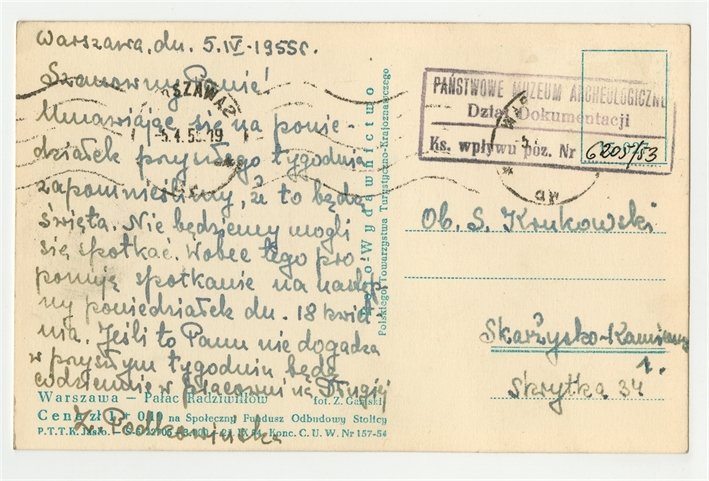 Warszawa, dn. 5.IV-1955r.
Szanowny Panie!
Umawiając się na ponie-
działek przyszłego tygodnia
zapomnieliśmy, że to będą
święta. Nie będziemy mogli
się spotkać. Wobec tego pro
ponuję spotkanie na następ
ny poniedziałek dn. 18 kwiet
nia. Jeśli to Panu nie dogadza
w przyszłym tygodniu będę
codziennie w pracowni na Długiej
Z. Podkowińska
Warszawa — Pałac Radziwiłłów
fot. Z.
Cena zł 1 + 0,
na Społeczny Fundusz Odbudowy Stolicy
P.T.T.K. Konc. C. U. W. Nr 157-54
Wydawnictwo
Polskiego Towarzystwa Turystyczno-Krajoznawczego
5.4.55.19
PAŃSTWOWE MUZEUM ARCHEOLOGICZNE
Dział Dokumentacji
Ks. wpływu poz. Nr 6205/53
Ob. S. Krukowski
Skarżysko-Kamienna
1.
Skrytka 34